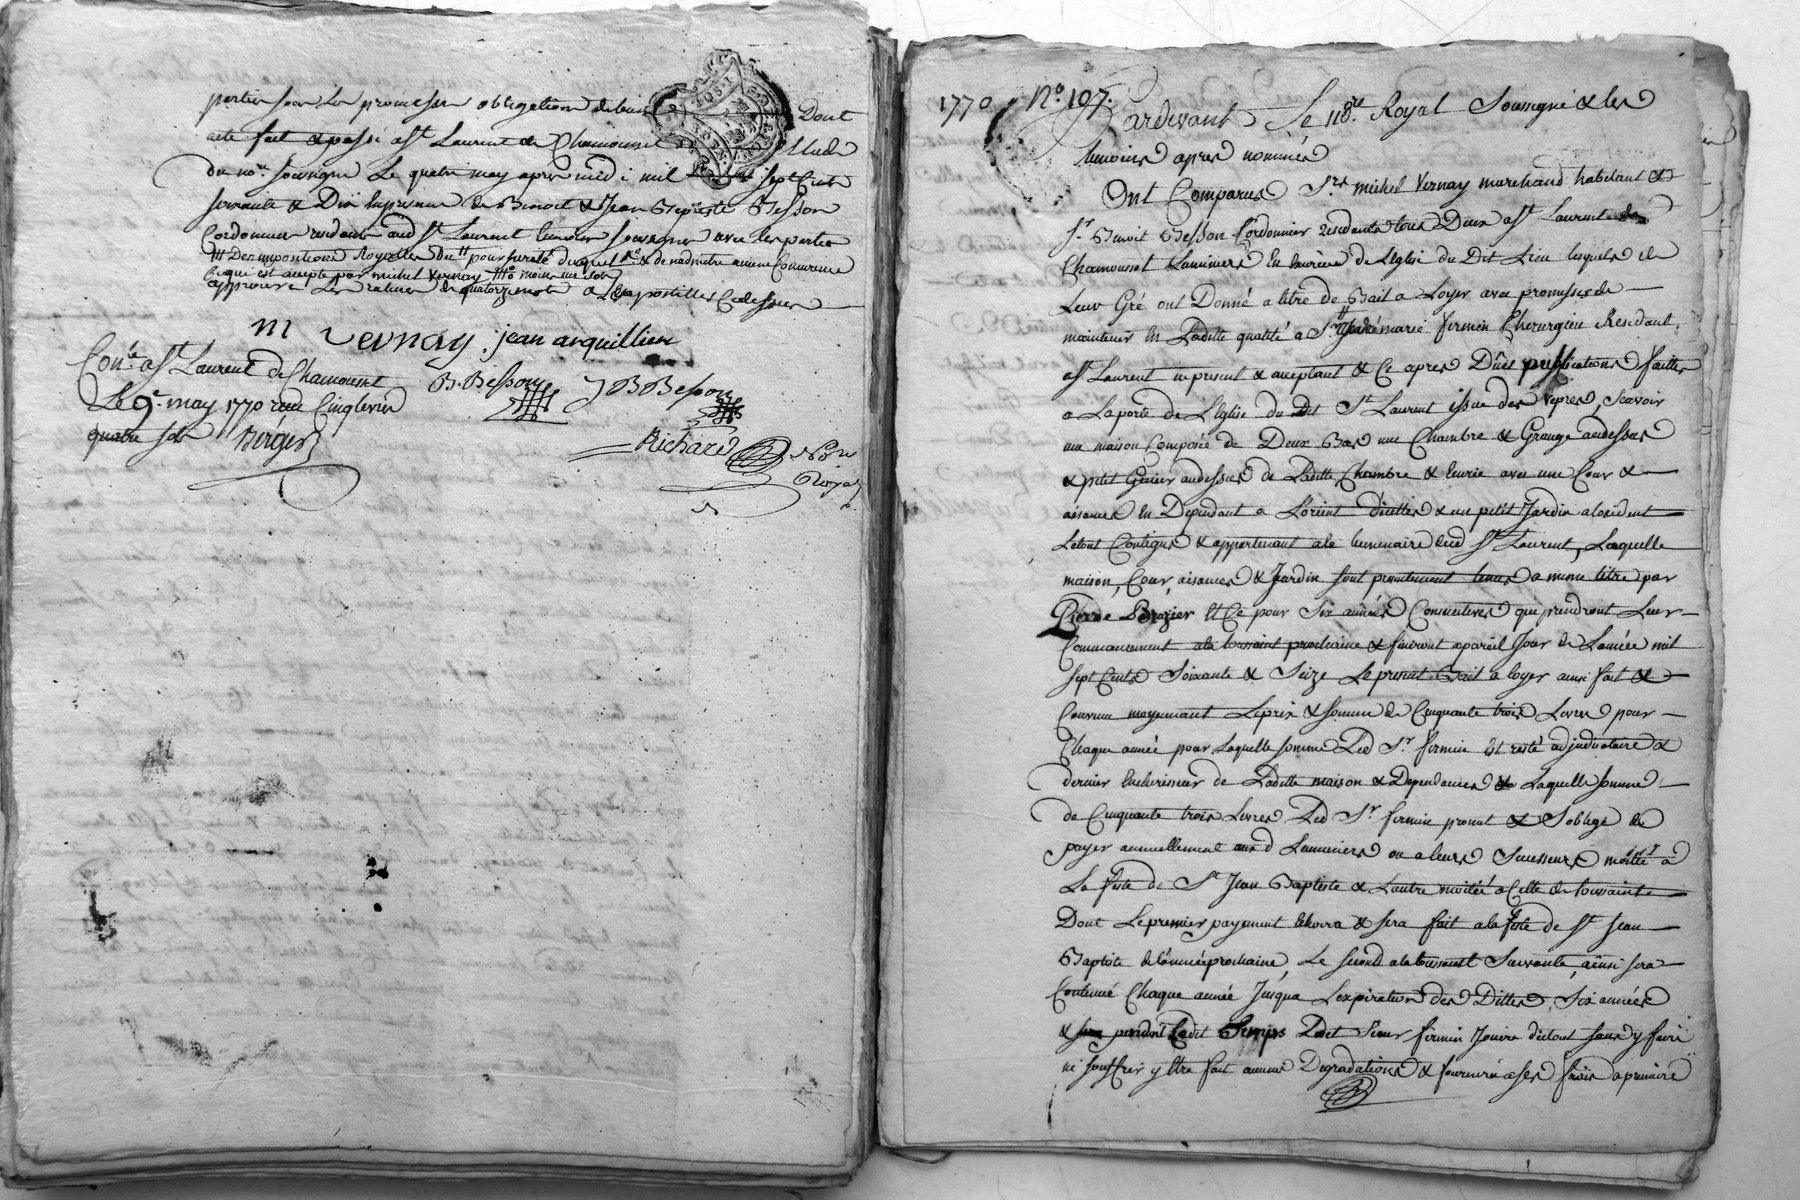 parties sous les promesses obligations de biens Dont
acte fait & passé a St Laurent de Chamousset Etude
du nore. soussigné Le quatre may apres midi mil sept Cents
soixante & Dix En presence de Benoit & Jean Baptiste Besson
Cordonnier residants aud St Laurent temoins soussignés avec les parties
Des impositions Royalles
Ce qui est accepté par michel Vernay
approuvé Les ratures de quatorze mots & Les apostilles Cy dessus
M Vernay, jean arquillien
Conlé a St Laurent de Chamousset
Le 9e. may 1770 reçu Cinq livres
quatre sols Berger
B. Besson J B Besson
Richard Nore
Royal
1770 No. 107.
Pardevant Le Nore. Royal Soussigné & les
temoins apres nommés
Ont Comparus Srs michel Vernay marchand habitant &
Sr. Benoit Besson Cordonnier residants tous Deux a St Laurent de
Chamousset Luminiers En Exercice de L'Eglise du Dit Lieu lesquels de
Leur Gré ont Donné a titre de Bail a Loyer avec promesses de
maintenir En Laditte qualité a Sr marie firmin Chirurgien Residant
a St Laurent icy present & acceptant & Ce apres Dûes publications faittes
a La porte de L'Eglise du Dit St Laurent issue des Vepres, Scavoir
une maison Composée de Deux Bas une Chambre & Grange audessus
& petit Grenier audessus de Laditte Chambre & Ecurie avec une Cour &
aisances En Dependant a L'orient D'icelles & un petit Jardin a locident
Le tout Contigus & appartenant a le luminaire dud St Laurent, Laquelle
maison, Cour, aisances & Jardin sont presentement tenus a meme titre par
Pierre Brazier Et Ce pour Six années Consecutives qui prendront Leur
Commancement a la toussaint prochaine & finiront a pareil Jour de L'année mil
sept Cents Soixante & Seize Le present Bail a loyer ainsi fait &
Convenu moyennant Le prix & somme de Cinquante trois Livres pour
Chaque année pour Laquelle somme Led Sr firmin Est resté adjudicataire &
dernier Encherisseur de Laditte maison & Dependances Laquelle somme
de Cinquante trois Livres Led Sr firmin promet & S'oblige de
payer annuellement aux d Luminiers ou a leurs Successeurs moitié à
La feste de St Jean Baptiste & L'autre moitié a Celle de toussaints
Dont Le premier payement Echoira & sera fait a la feste de St Jean
Baptiste de l'année prochaine, Le second a la toussaint Suivante, ainsi sera
Continué Chaque année Jusqua L'expiration des Dittes Six années
& pendant Ledit Temps Ledit Sieur firmin Jouira du tout sans y faire
ni souffrir y Etre fait aucunes Degradations & fournira a ses frais a premiere